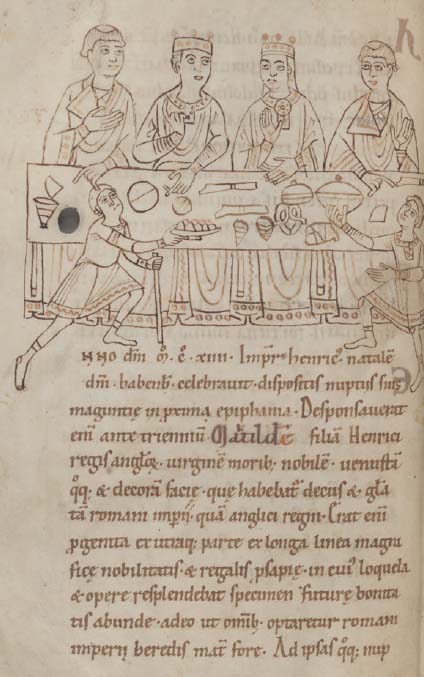 h
NNO dm̄ m̊. c̊. xiiii. Imp̄r henric᷒ natale
dn̄i. babenb̄. celebravit. dispositis nuptiis suis
maguntie in prima epiphania. Desponsaverat
eni ante triennium. Matildē filiā Henrici
regis angloꝝ. virginē morib; nobilē. venustā
q̊q; & decorā facie. que habebat decus & glā
tā romani imperii. quā anglici regni. Erat eni
ꝓgenita ex utraq; parte ex longa linea magni
ficę nobilitatis. & regalis ꝓsapię. in cui᷒ loquela
& opere resplendebat specimen futurę bonita
tis abunde. adeo ut omīb; optaretur romani
imperii heredis mat̄ fore. Ad ipsas q̊q; nup